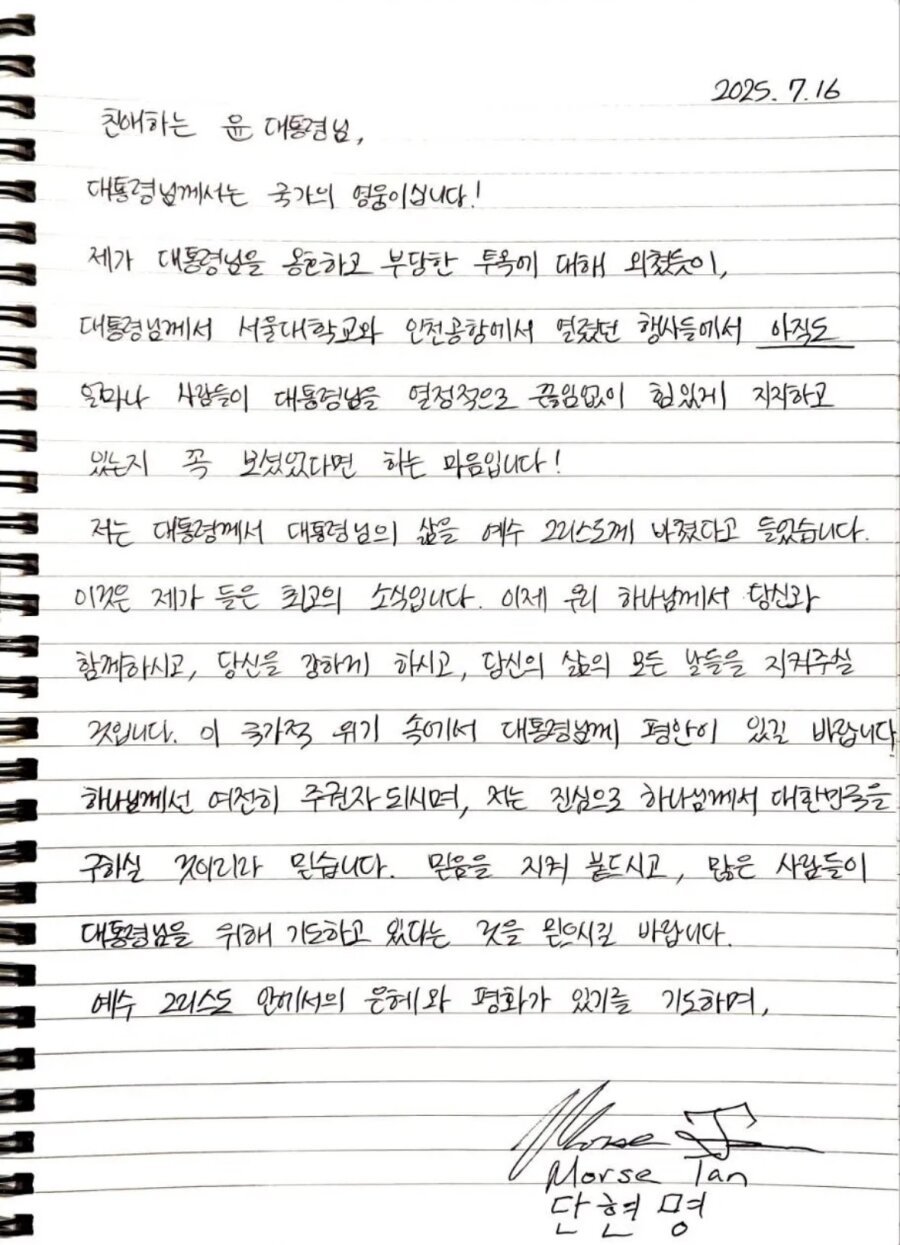 2025. 7. 16
친애하는 윤 대통령님,
대통령님께서는 국가의 영웅이십니다!
제가 대통령님을 옹호하고 부당한 투옥에 대해 외쳤듯이,
대통령님께서 서울대학교와 인천공항에서 열렸던 행사들에서 아직도
얼마나 사람들이 대통령님을 열정적으로 끊임없이 힘있게 지지하고
있는지 꼭 보셨었다면 하는 마음입니다!
저는 대통령께서 대통령님의 삶을 예수 그리스도께 바쳤다고 들었습니다.
이것은 제가 들은 최고의 소식입니다. 이제 우리 하나님께서 당신과
함께하시고, 당신을 강하게 하시고, 당신의 삶의 모든 날들을 지켜주실
것입니다. 이 국가적 위기 속에서 대통령님께 평안이 있길 바랍니다
하나님께선 여전히 주권자 되시며, 저는 진심으로 하나님께서 대한민국을
구하실 것이리라 믿습니다. 믿음을 지켜 붙드시고, 많은 사람들이
대통령님을 위해 기도하고 있다는 것을 믿으시길 바랍니다.
예수 그리스도 안에서의 은혜와 평화가 있기를 기도하며,
Morse Tan
단현명